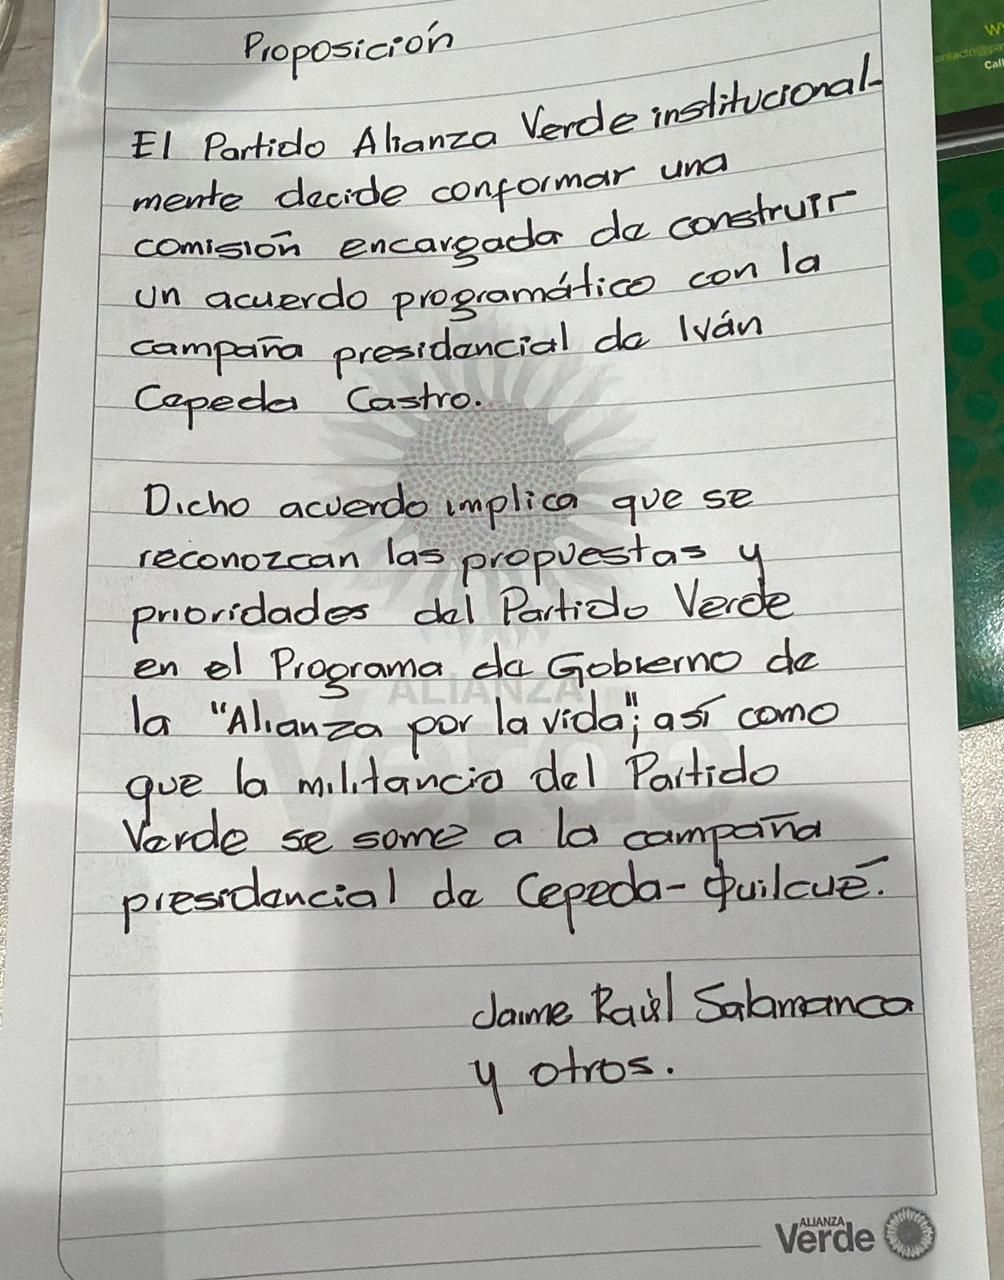 Proposición
El Partido Alianza Verde institucional-
mente decide conformar una
comisión encargada de construir
un acuerdo programático con la
campaña presidencial de Iván
Cepeda Castro.
Dicho acuerdo implica que se
reconozcan las propuestas y
prioridades del Partido Verde
en el Programa de Gobierno de
la "Alianza por la vida"; así como
que la militancia del Partido
Verde se some a la campaña
presidencial de Cepeda-Quilcué.
Jaime Raúl Salamanca
y otros.
ALIANZA
Verde
ALIANZA
Verde
Call